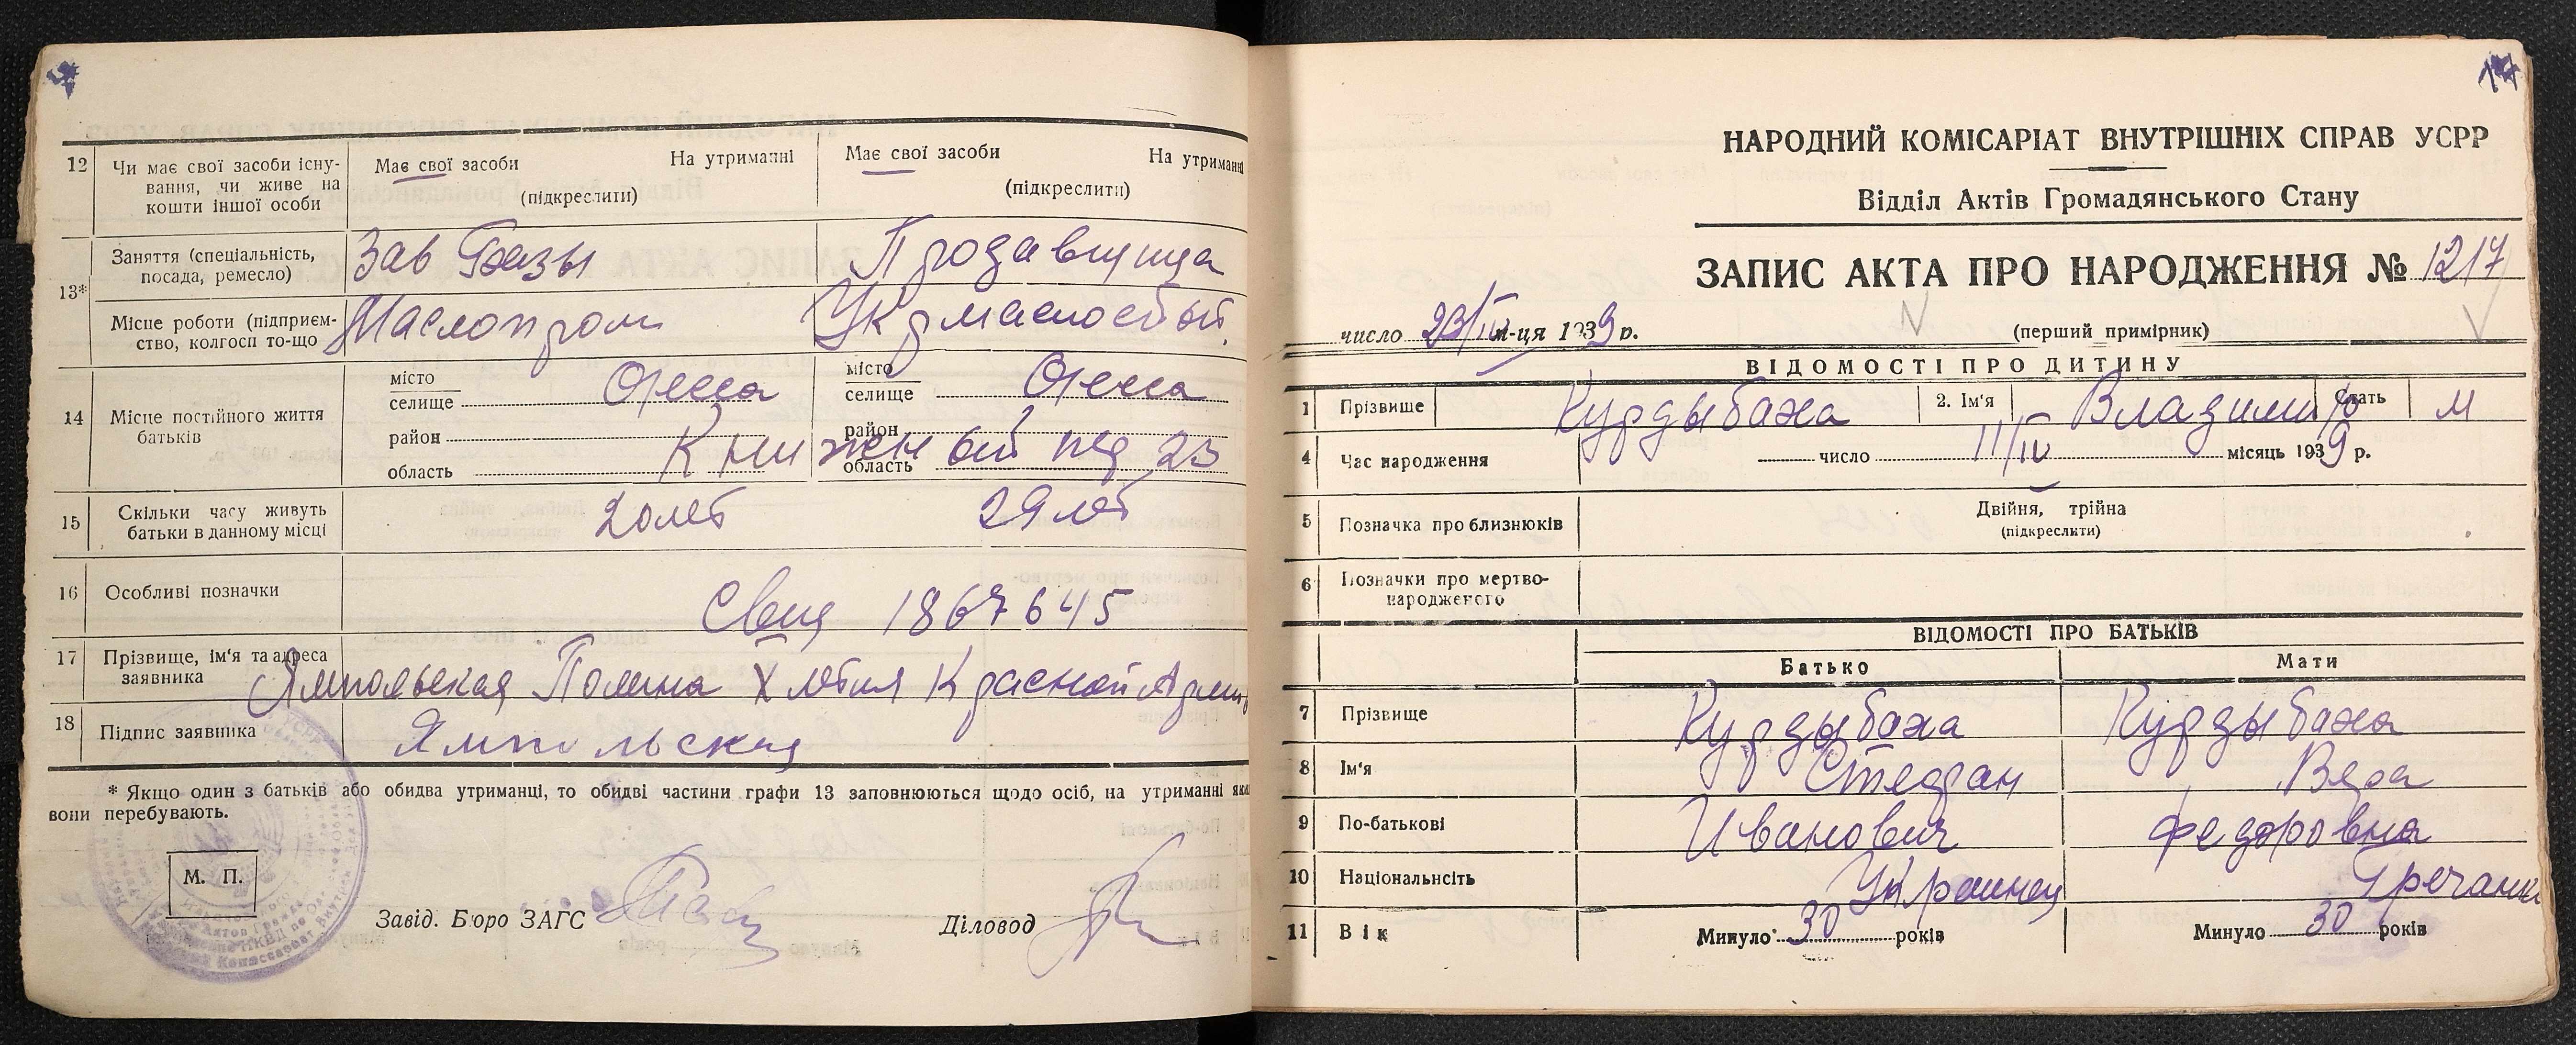 12 Чи має свої засоби існу-
вання, чи живе на
кошти іншої особи
Має свої засоби На утриманні
(підкреслити)
Має свої засоби На утриманні
(підкреслити)
13*
Заняття (спеціальність,
посада, ремесло)
Зав Базы
Продавщица
Місце роботи (підприєм-
ство, колгосп то-що
Маслопром
Укрмаслосбыт.
14 Місце постійного життя
батьків
місто
селище Одесса
район
область
місто
селище Одесса
район
область
Книжный пер 23
15 Скільки часу живуть
батьки в данному місці
20 лет
29 лет
16 Особливі позначки
Свид 1867645
17 Прізвище, ім'я та адреса
заявника
Ямпольская Полина X летия Красной Арми
18 Підпис заявника
Ямпольская
* Якщо один з батьків або обидва утриманці, то обидві частини графи 13 заповнюються щодо осіб, на утриманні яки
вони перебувають.
М. П.
Завід. Бюро ЗАГС
Діловод
17
НАРОДНИЙ КОМІСАРІАТ ВНУТРІШНІХ СПРАВ УСРР
Відділ Актів Громадянського Стану
ЗАПИС АКТА ПРО НАРОДЖЕННЯ № 1217
число 23/IV м-ця 1939 р.
(перший примірник)
ВІДОМОСТІ ПРО ДИТИНУ
1 Прізвище Курдыбаха 2. Ім'я Владимир Стать М
4 Час народження число 11/IV місяць 1939 р.
5 Позначка про близнюків
Двійня, трійня
(підкреслити)
6 Позначки про мертво-
народженого
ВІДОМОСТІ ПРО БАТЬКІВ
Батько Мати
7 Прізвище Курдыбаха Курдыбаха
8 Ім'я Стефан Вера
9 По-батькові Иванович Федоровна
10 Національнсіть Украинец Гречанка
11 Вік Минуло 30 років Минуло 30 років